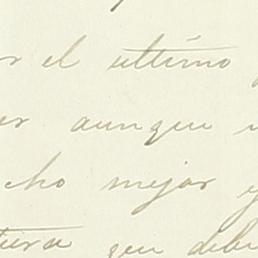 r el ultimo
er aunque
cho mejor y
tura que debi